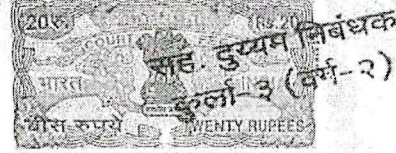 20रु. Rs.20
COURT
भारत
बीस रुपये TWENTY RUPEES
सह. दुय्यम निबंधक
कुर्ला-३ (वर्ग-२)